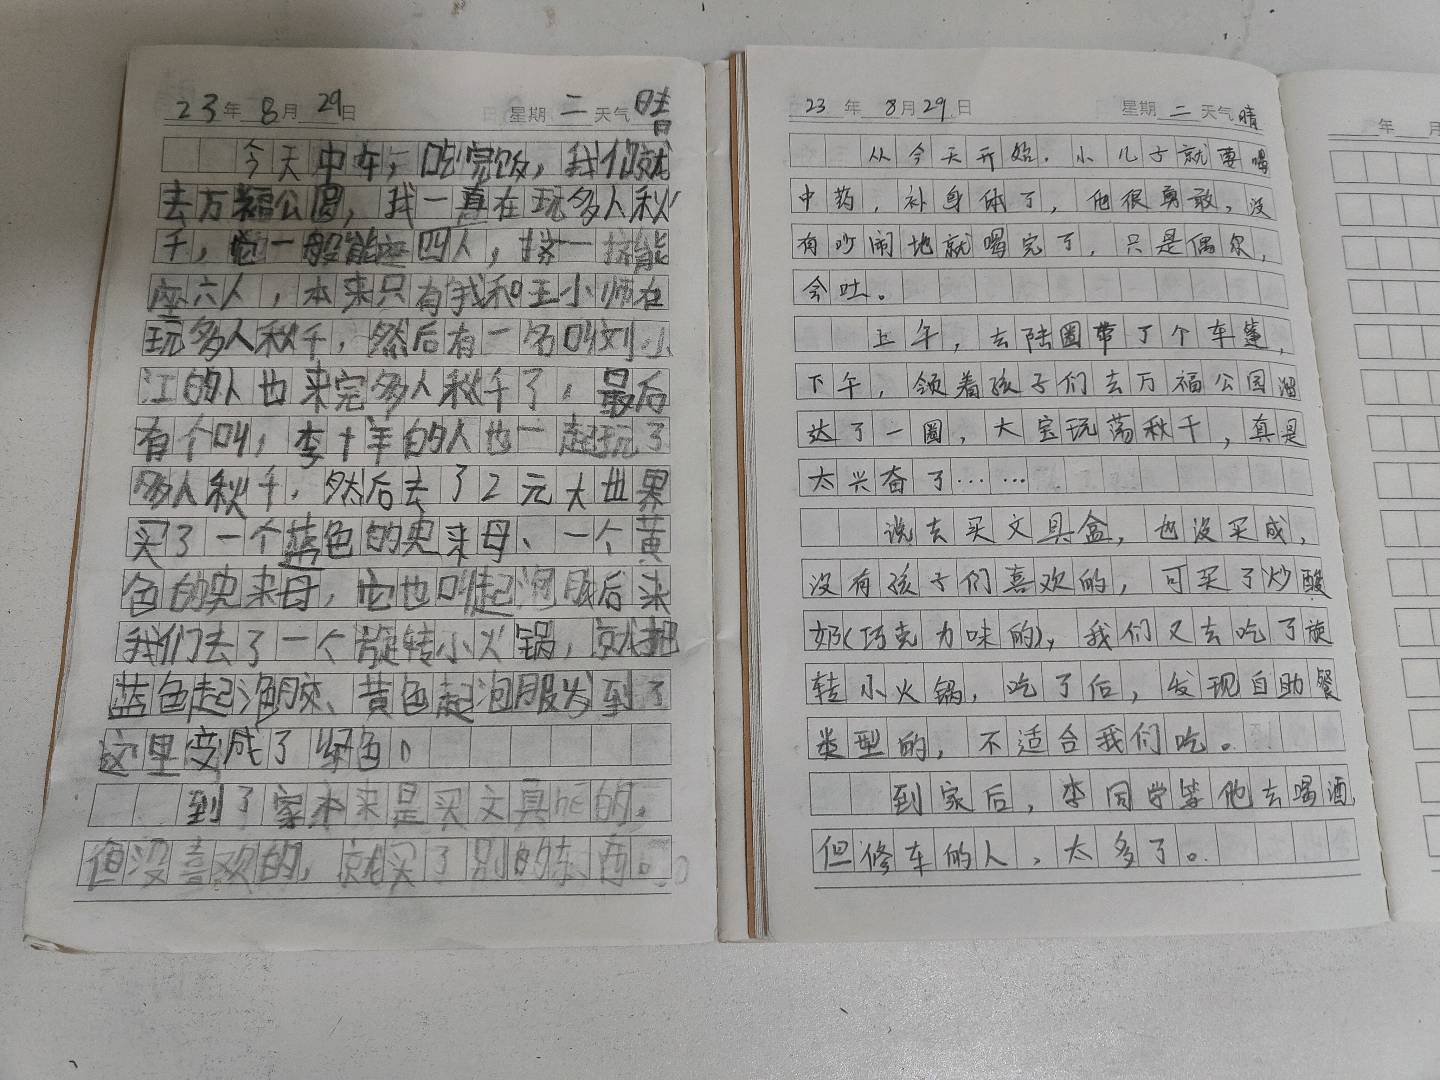 23年8月29日 星期二 天气晴
今天中午，吃完饭，我们就
去万福公园，我一直在玩多人秋
千，它一般能座四人，挤一挤能
座六人，本来只有我和王小师在
玩多人秋千，然后有一名叫刘小
江的人也来完多人秋千了，最后
有个叫，李十羊的人也一起玩了
多人秋千，然后去了2元大世果
买了一个蓝色的史来母、一个黄
色的史来母，它也叫起泡胶后来
我们去了一个旋转小火锅，就把
蓝色起泡胶、黄色起泡胶发到了
这里变成了绿色。
到了家本来是买文具hé的，
但没喜欢的，就买了别的东西。
23年8月29日 星期二 天气晴
从今天开始，小儿子就要喝
中药，补身体了，他很勇敢，没
有吵闹地就喝完了，只是偶尔，
会吐。
上午，去陆圈带了个车篷，
下午，领着孩子们去万福公园溜
达了一圈，大宝玩荡秋千，真是
太兴奋了……
说去买文具盒，也没买成，
没有孩子们喜欢的，可买了炒酸
奶(巧克力味的)，我们又去吃了旋
转小火锅，吃了后，发现自助餐
类型的，不适合我们吃。
到家后，李同学等他去喝酒，
但修车的人，太多了。
年 月